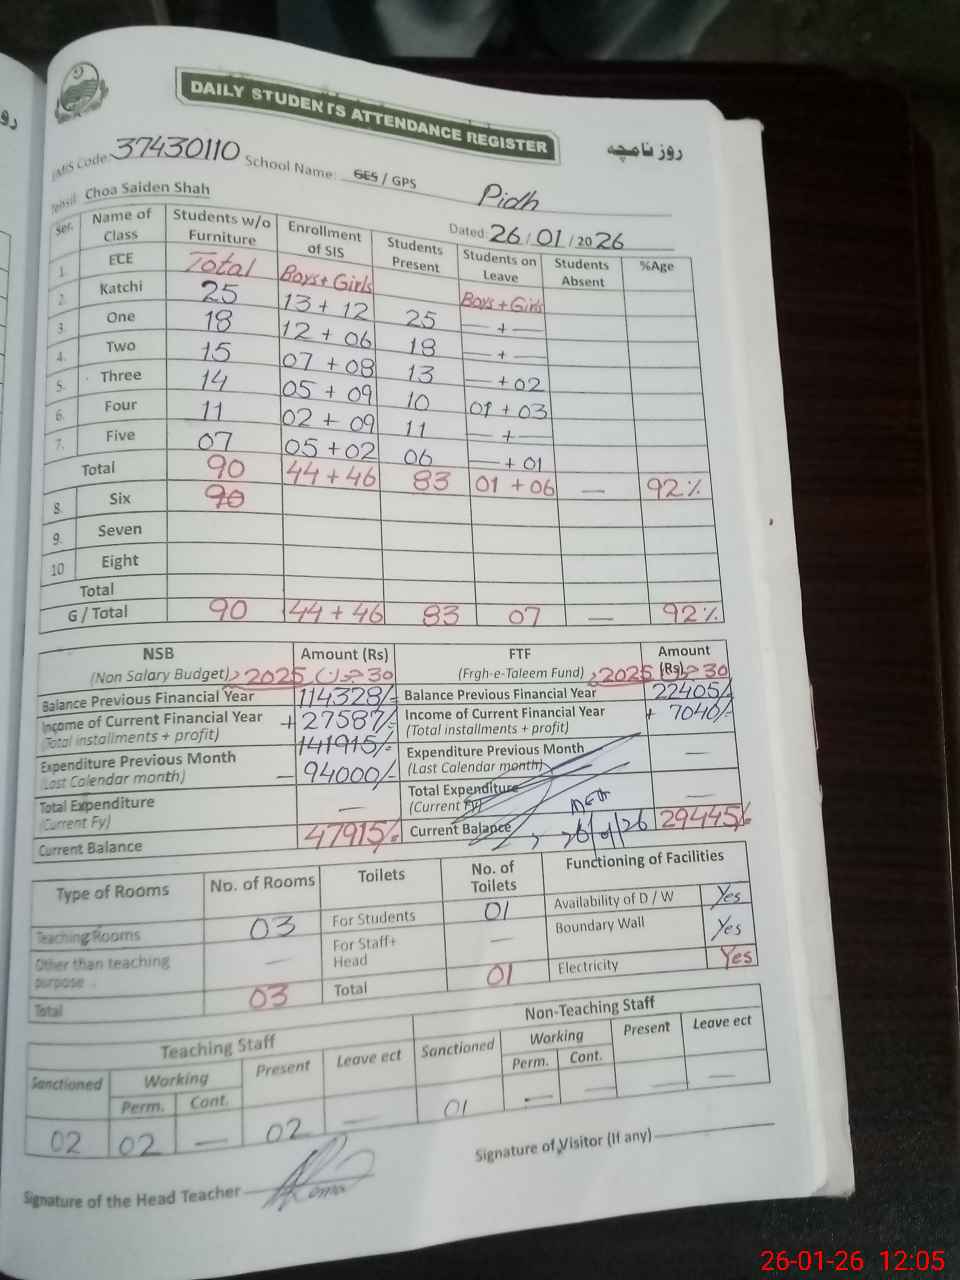 DAILY STUDENTS ATTENDANCE REGISTER
روز نامچہ
EMIS Code: 37430110 School Name: GES / GPS Pidh
Tehsil: Choa Saiden Shah
Dated: 26 / 01 / 2026
Ser. Name of Class Students w/o Furniture Enrollment of SIS Students Present Students on Leave Students Absent %Age
1. ECE Total Boys + Girls Boys + Girls
2. Katchi 25 13 + 12 25 — + —
3. One 18 12 + 06 18 — + —
4. Two 15 07 + 08 13 — + 02
5. Three 14 05 + 09 10 01 + 03
6. Four 11 02 + 09 11 — + —
7. Five 07 05 + 02 06 — + 01
Total 90 44 + 46 83 01 + 06 — 92%
8. Six 90
9. Seven
10 Eight
Total
G / Total 90 44 + 46 83 07 — 92%
NSB (Non Salary Budget) 30 جون 2025 Amount (Rs) FTF (Frgh-e-Taleem Fund) 30 جون 2025 Amount (Rs)
Balance Previous Financial Year 114328/- Balance Previous Financial Year 22405/-
Income of Current Financial Year (Total installments + profit) + 27587/- Income of Current Financial Year (Total installments + profit) + 7040/-
141915/-
Expenditure Previous Month (Last Calendar month) — 94000/- Expenditure Previous Month (Last Calendar month) —
Total Expenditure (Current Fy) — Total Expenditure (Current Fy) —
Current Balance 47915/- Current Balance 26/1/26 29445/-
Type of Rooms No. of Rooms Toilets No. of Toilets Functioning of Facilities
Teaching Rooms 03 For Students 01 Availability of D / W Yes
Other than teaching purpose — For Staff+ Head — Boundary Wall Yes
Total 03 Total 01 Electricity Yes
Teaching Staff Non-Teaching Staff
Sanctioned Working Present Leave ect Sanctioned Working Present Leave ect
Perm. Cont. Perm. Cont.
02 02 — 02 — 01 — — — —
Signature of the Head Teacher
Signature of Visitor (If any)
26-01-26 12:05